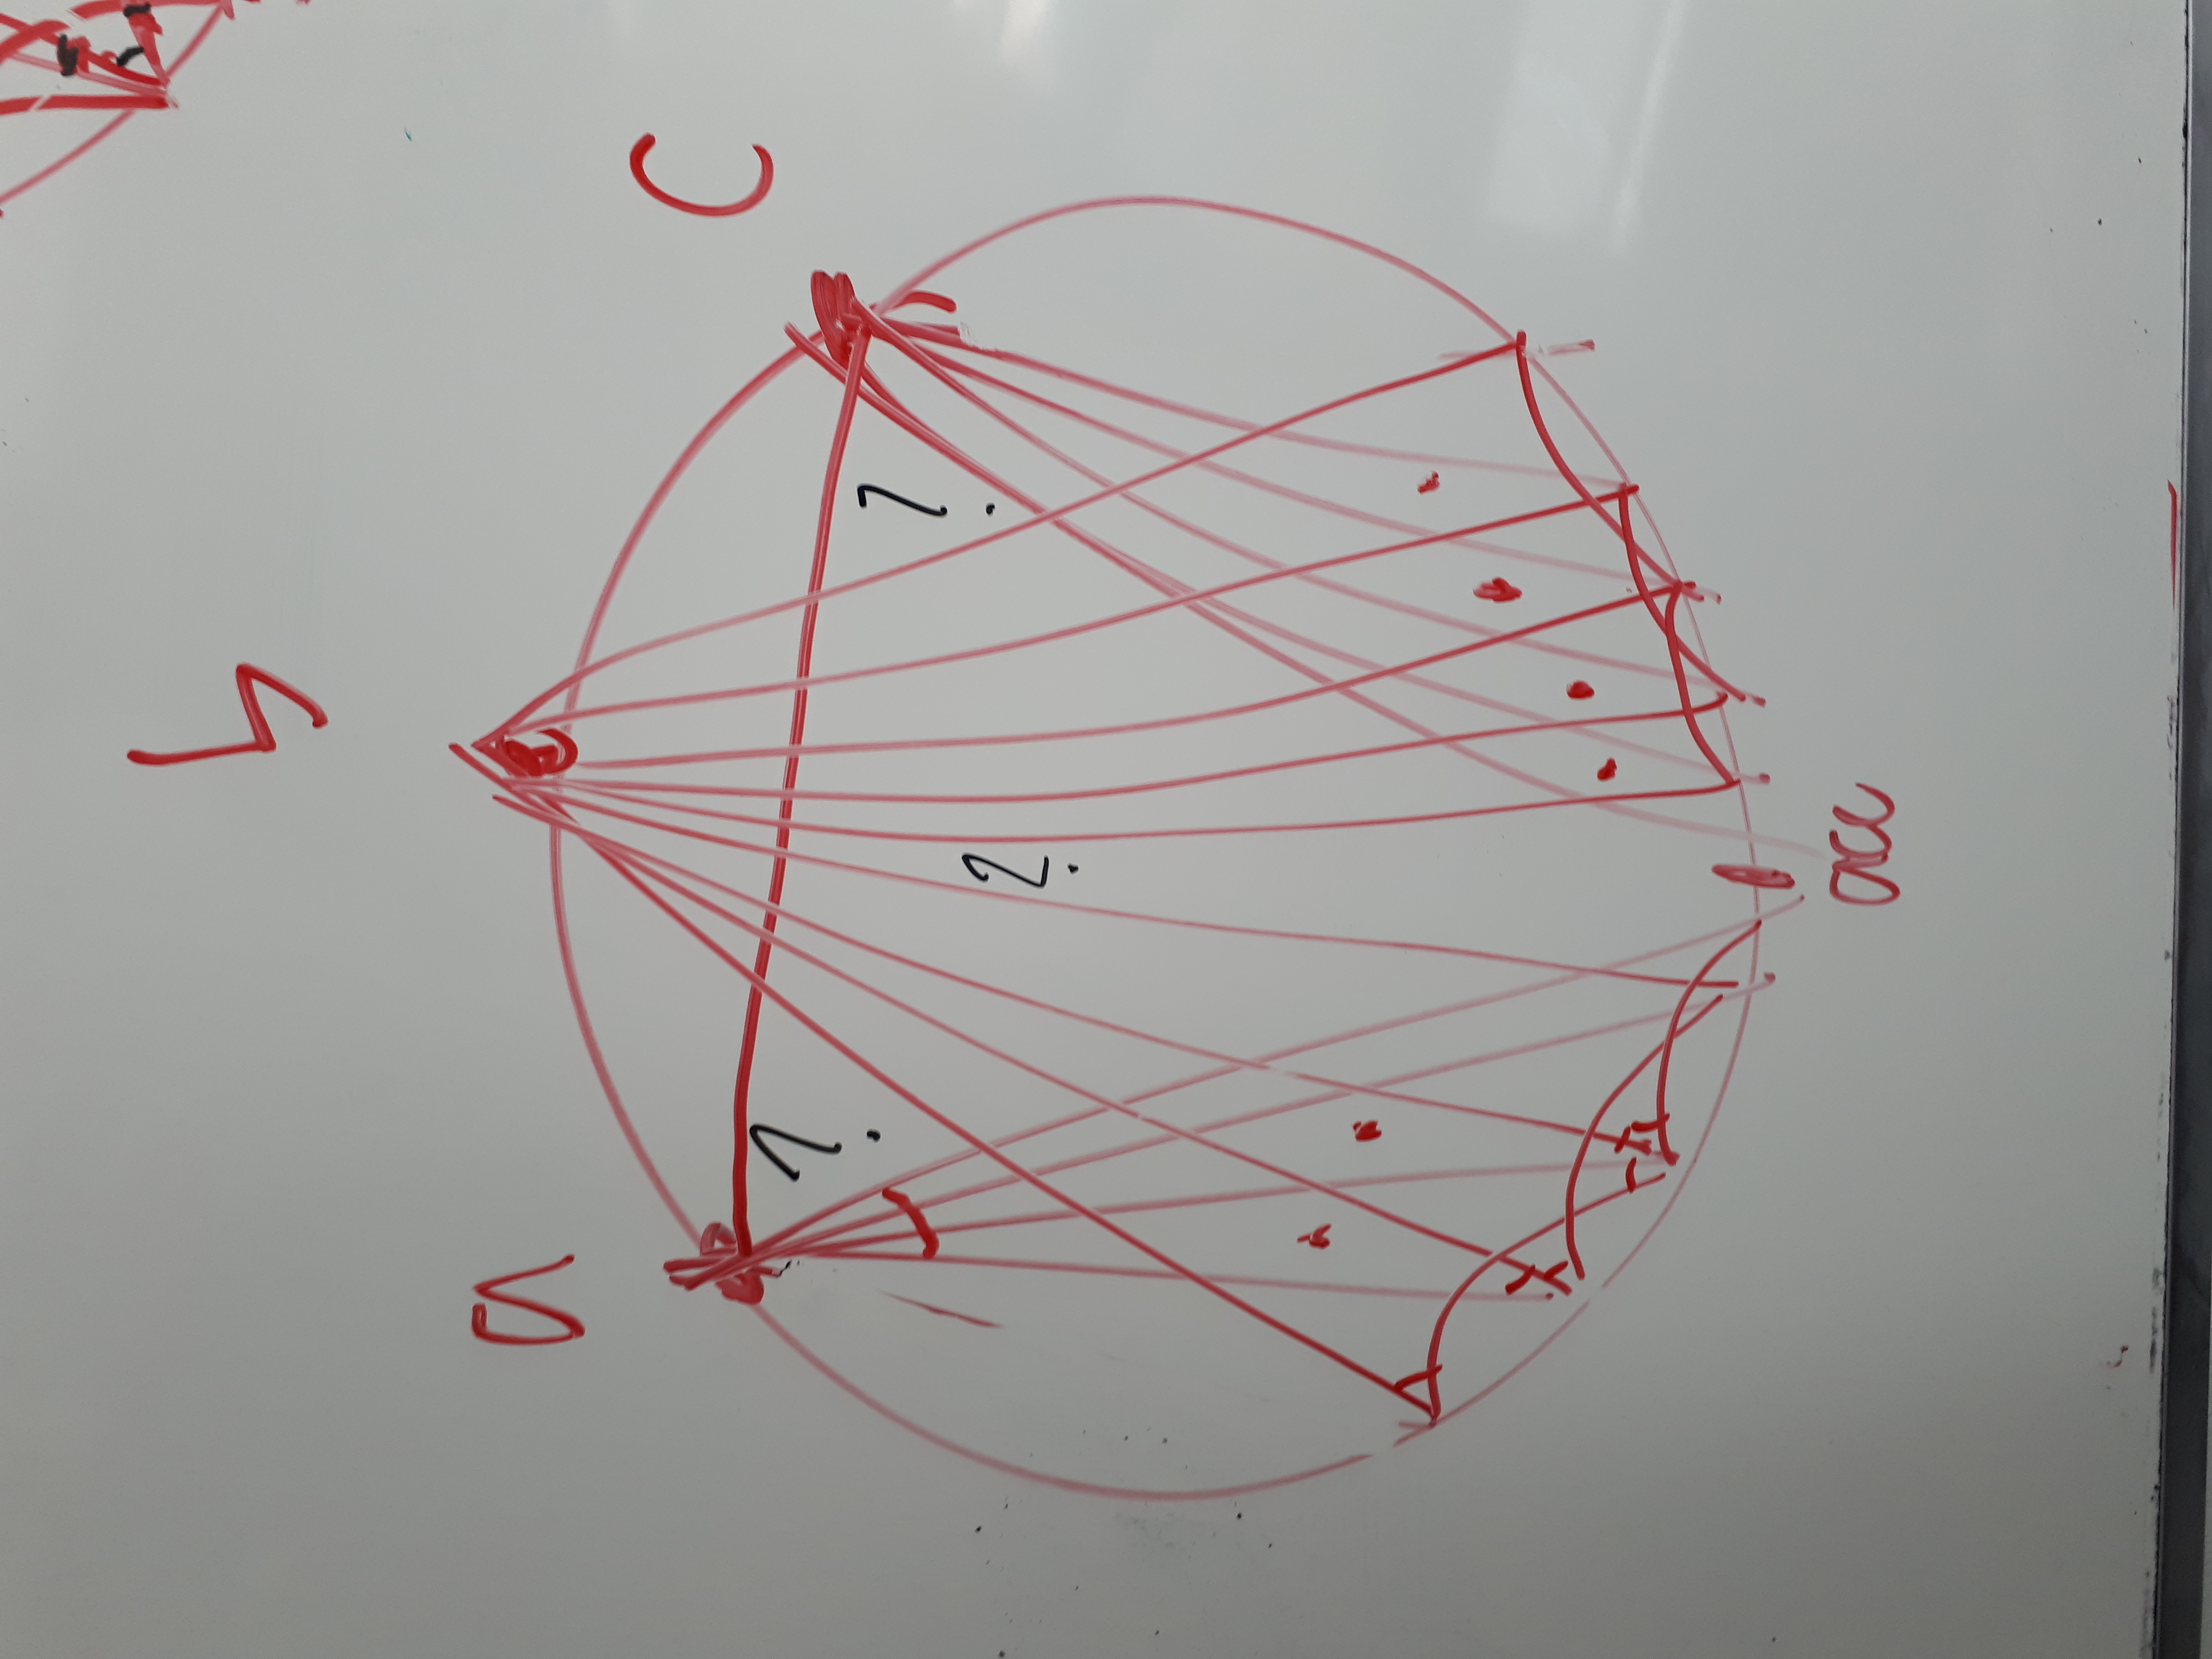 b
a
c
?
?
?
acc